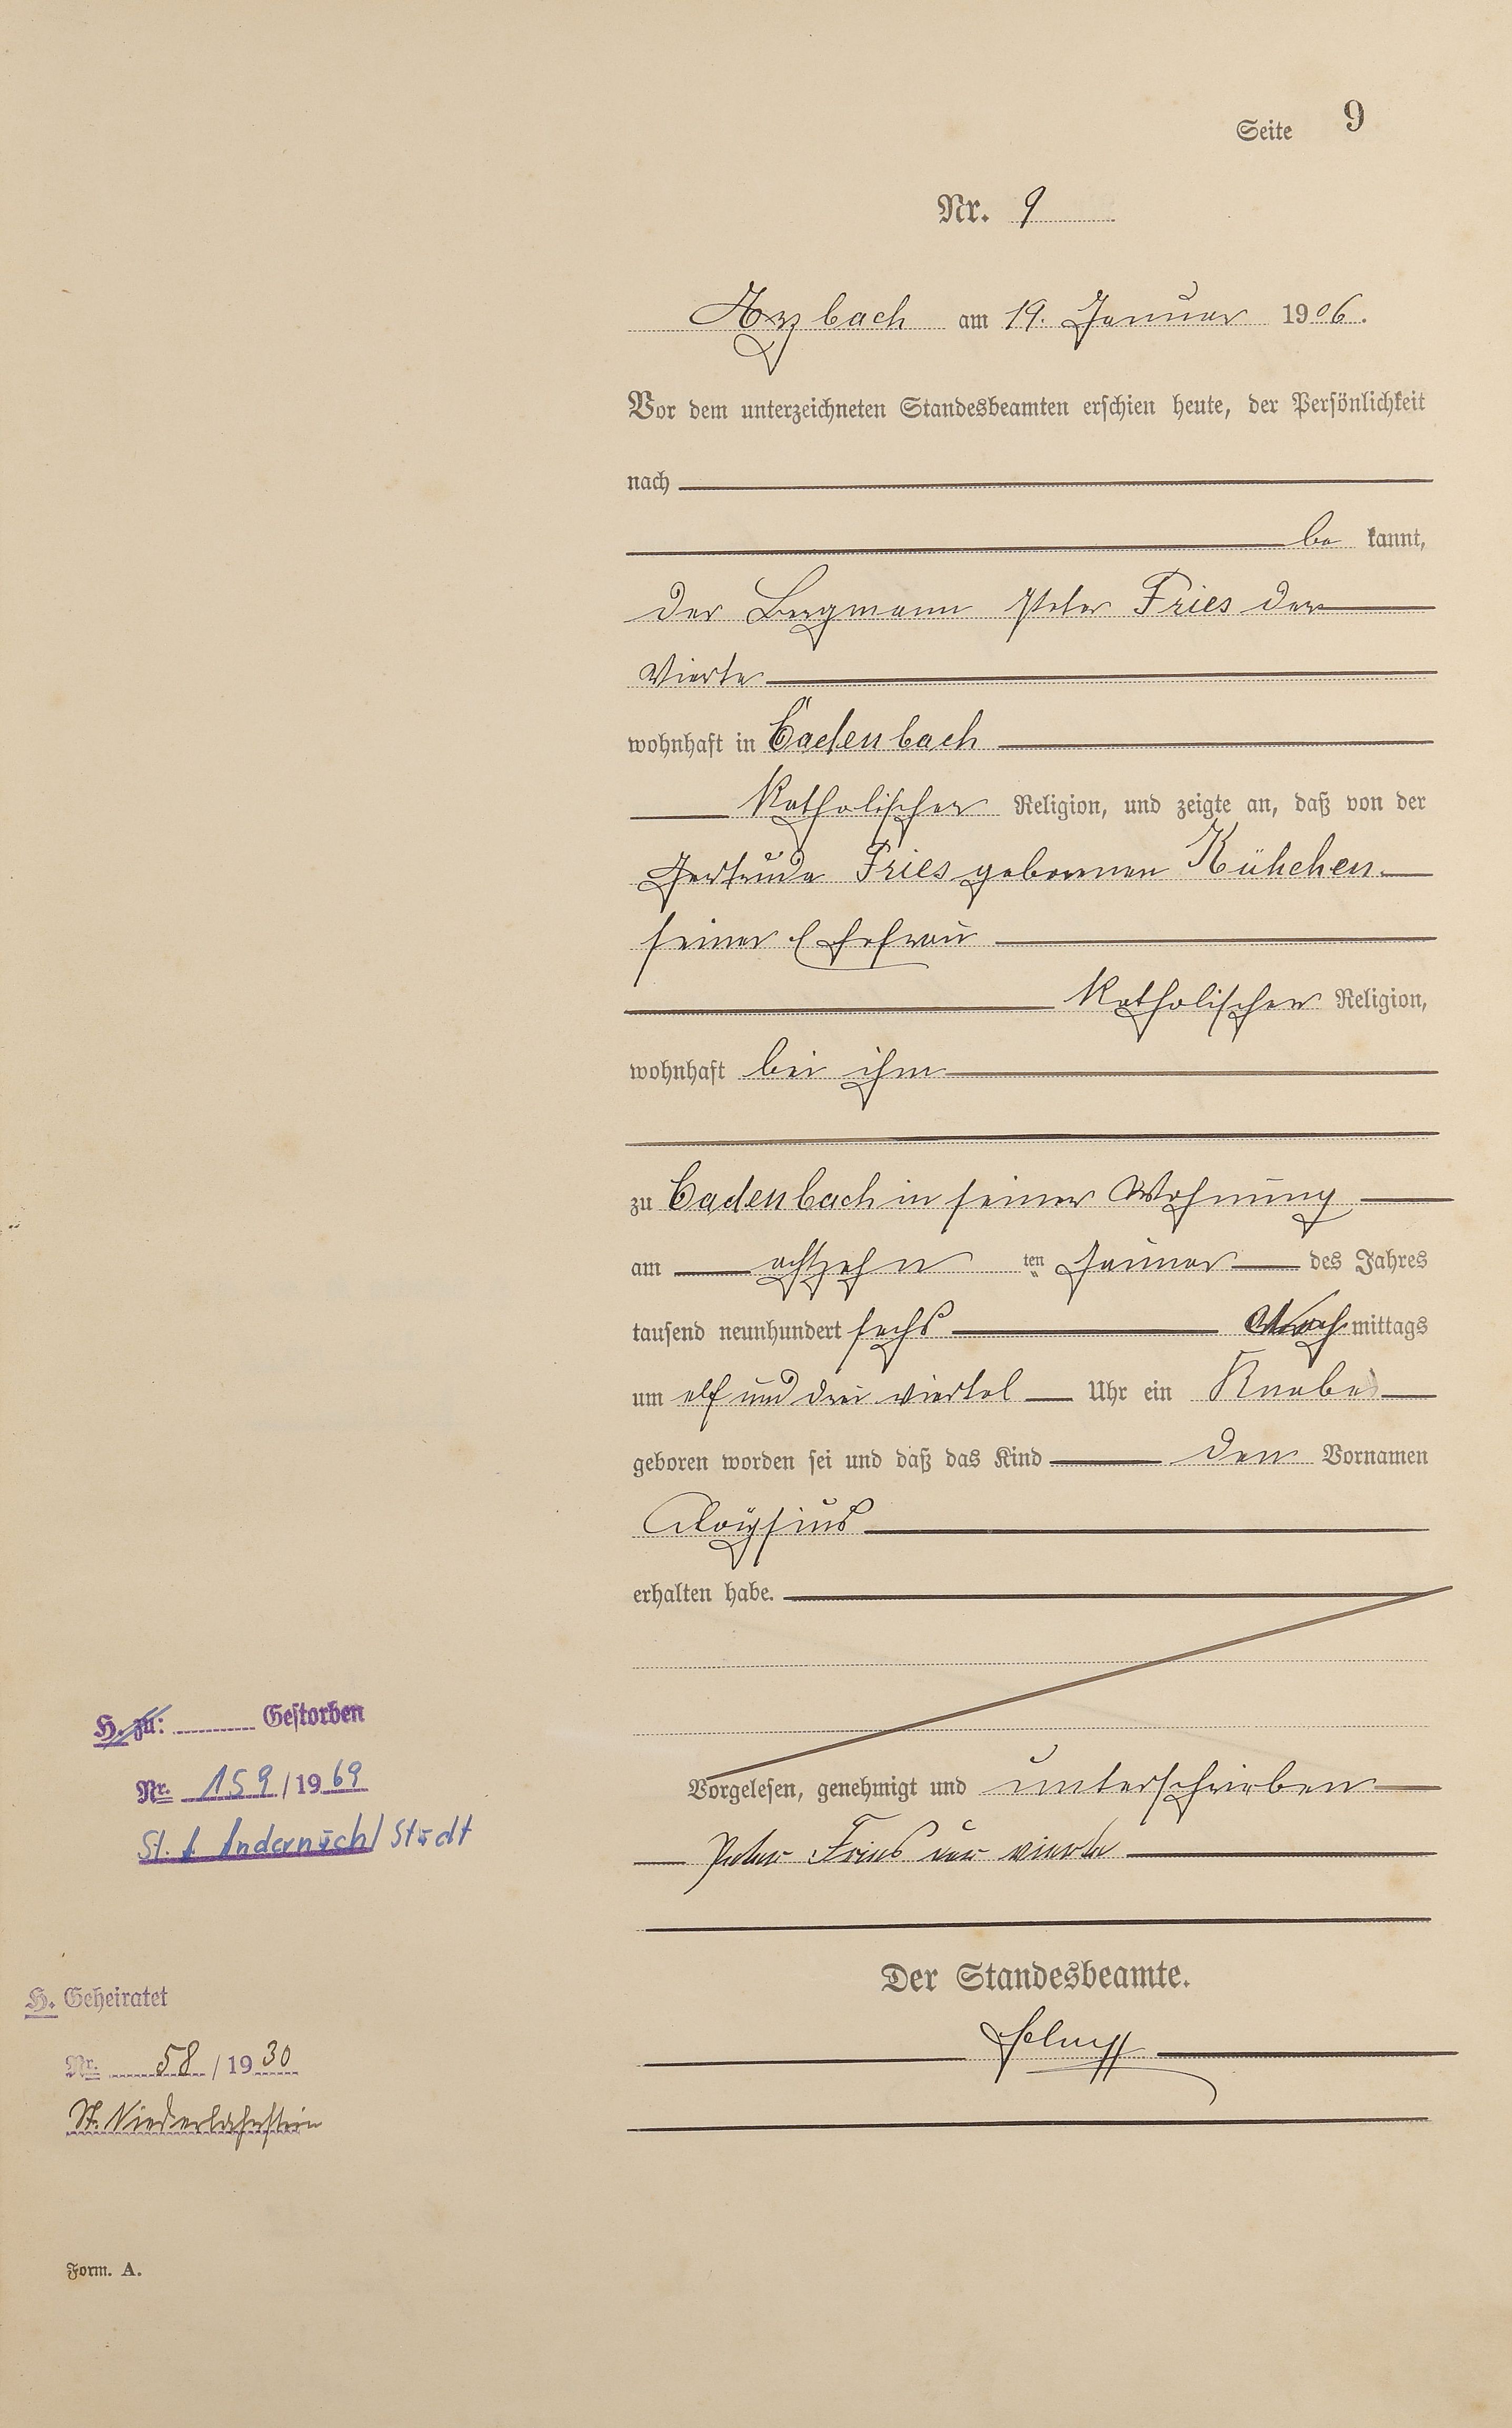 Seite 9
Nr. 9
Arzbach am 19. Januar 1906.
Vor dem unterzeichneten Standesbeamten erschien heute, der Persönlichkeit
nach
be kannt,
der Bergmann Peter Fries der
Vierte
wohnhaft in Cadenbach
Katholischer Religion, und zeigte an, daß von der
Gertrude Fries geborenen Kühchen
seiner Ehefrau
Katholischer Religion,
wohnhaft bei ihm
zu Cadenbach in seiner Wohnung
am achtzehn ten Januar des Jahres
tausend neunhundert sechs Nach mittags
um elf und drei viertel Uhr ein Knabe
geboren worden sei und daß das Kind den Vornamen
Aloÿsius
erhalten habe.
Vorgelesen, genehmigt und unterschrieben
Peter Fries der vierte
Der Standesbeamte.
H. zu: Gestorben
Nr. 159/1969
St. A Andernach/Stadt
H. Geheiratet
Nr. 58/1930
St. Niederlahnstein
Form. A.